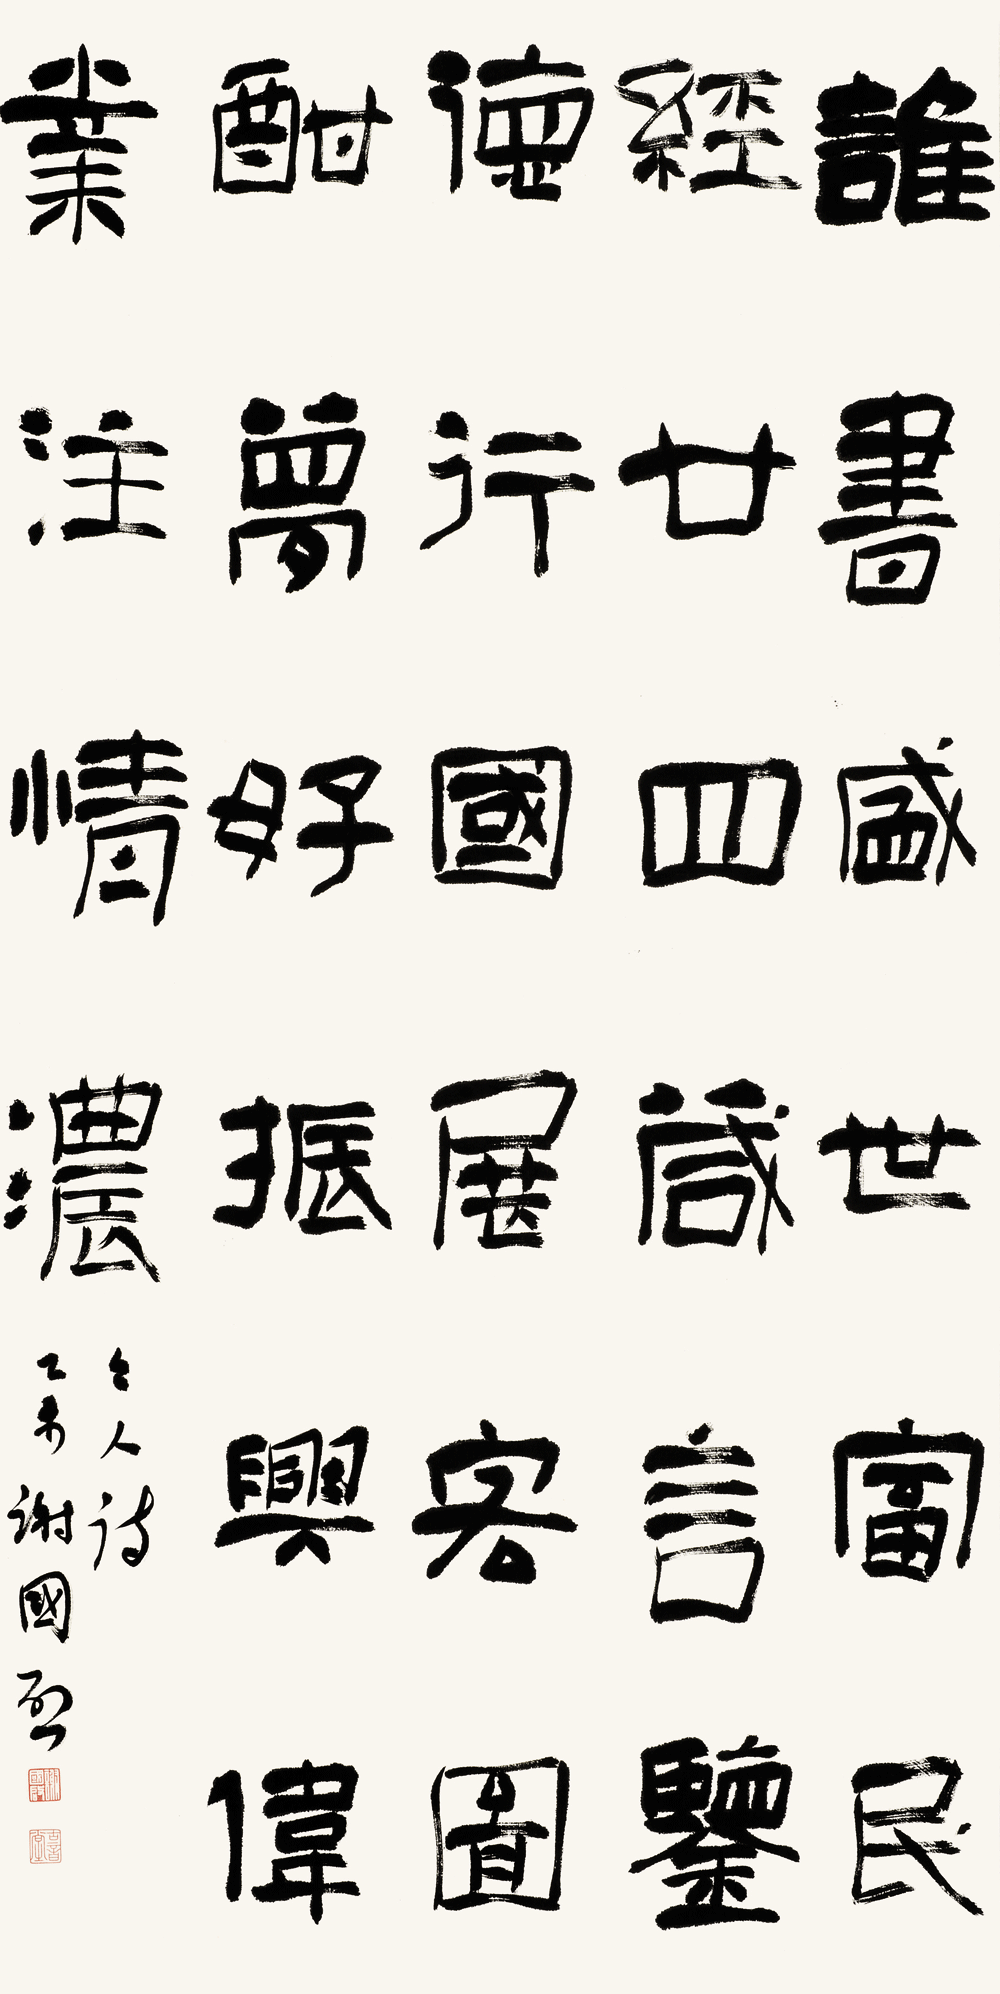 誰書盛世富民
經廿四箴言鑒
德行國展宏圖
酣夢好振興偉
業注情濃
今人詩
乙未謝國